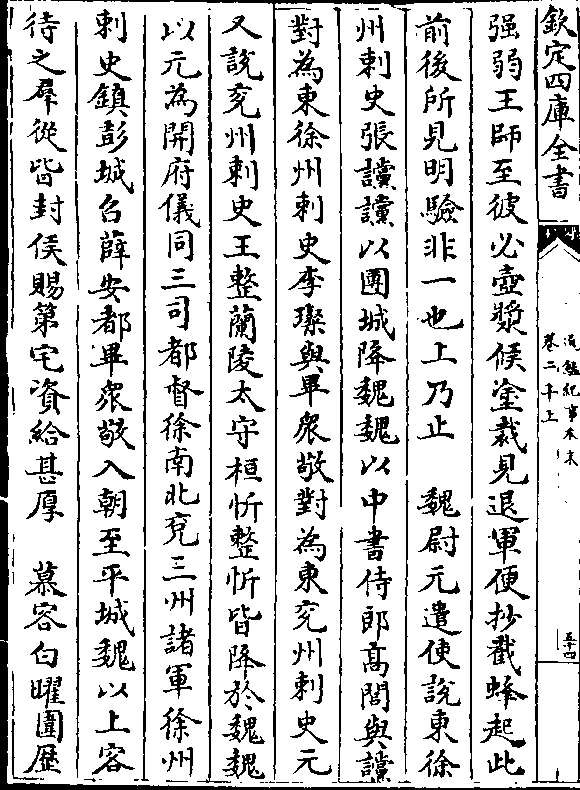 欽定四庫全書
通鑑紀事本末
卷二十上
五十四
强弱王師至彼必壺漿候塗裁見退軍便抄截蜂起此
前後所見明驗非一也上乃止　魏尉元遣使說東徐
州刺史張讜讜以團城降魏魏以中書侍郎高閭與讜
對為東徐州刺史李璨與畢衆敬對為東兖州刺史元
又說兖州刺史王整蘭陵太守桓忻整忻皆降於魏魏
以元為開府儀同三司都督徐南北兖三州諸軍徐州
刺史鎮彭城召薛安都畢衆敬入朝至平城魏以上客
待之羣從皆封侯賜第宅資給甚厚　慕容白曜圍歷